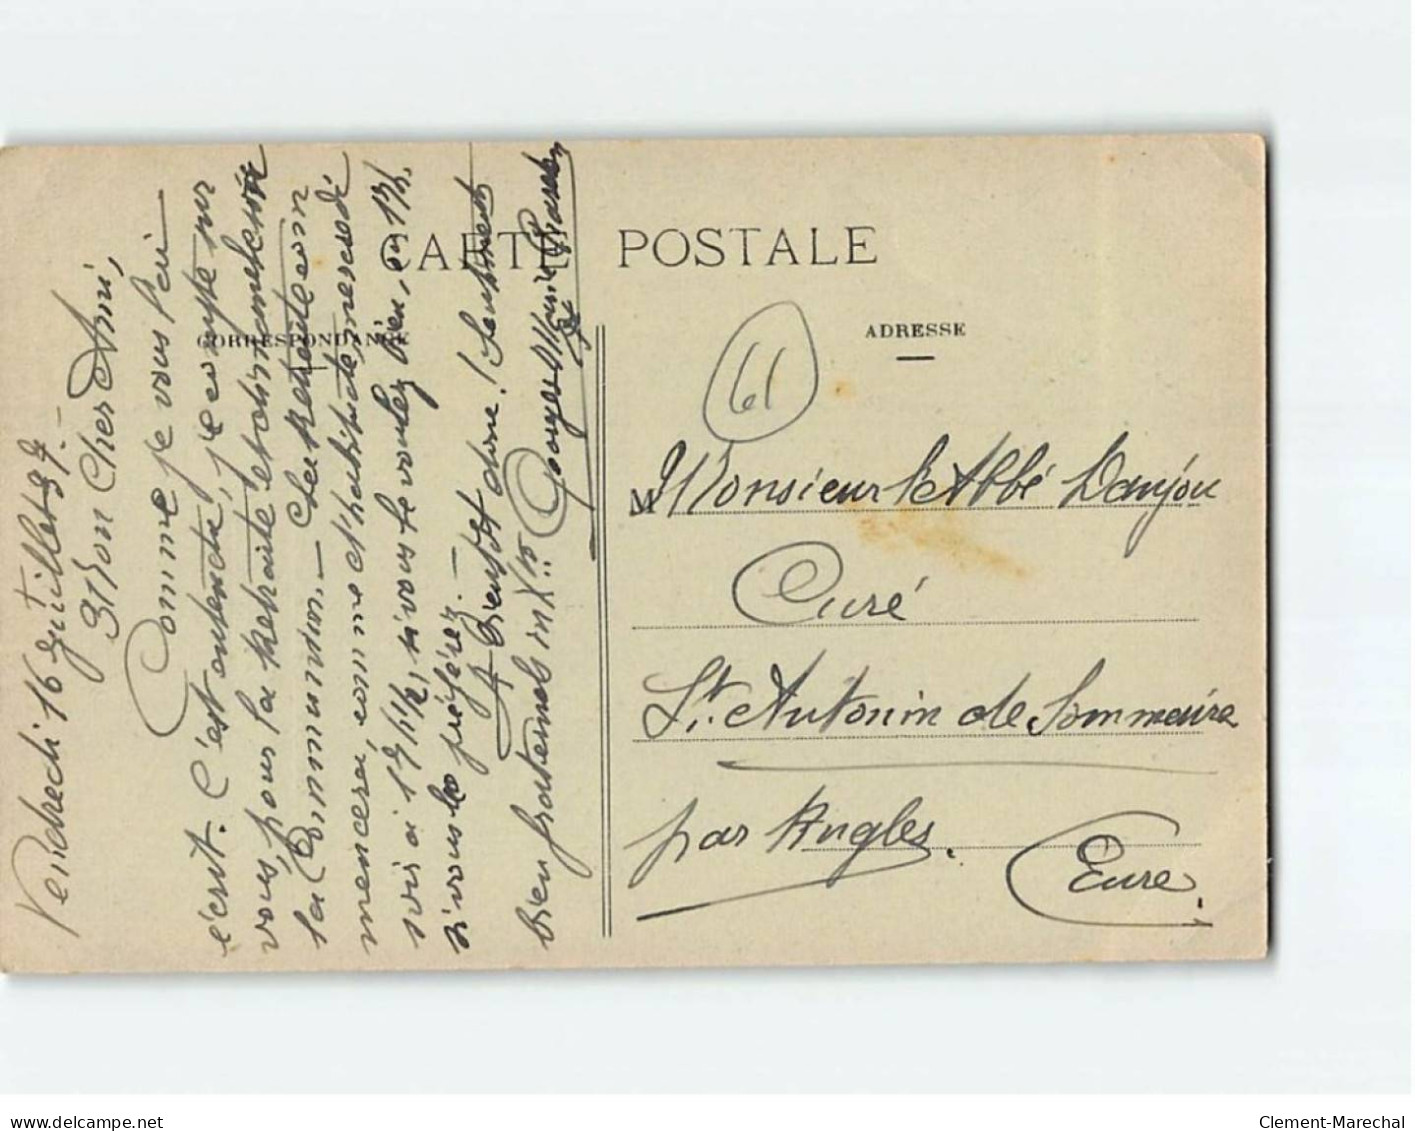 CARTE POSTALE
CORRESPONDANCE
ADRESSE
61
Vendredi 16 Juillet 37. –
Mon Cher Ami,
Comme je vous l'ai
écrit. C'est entendu, je compte sur
vous, pour la retraite et
la Communion. – La retraite com
mencera comme d'habitude mercredi
soir à
si vous le voulez bien, ou
si vous le préférez. –
A Bientôt donc !
bien fraternels in X to
Monsieur l'Abbé Danjou
Curé
St. Antonin de Sommaire
par Rugles.
Eure.
www.delcampe.net
Clement-Marechal